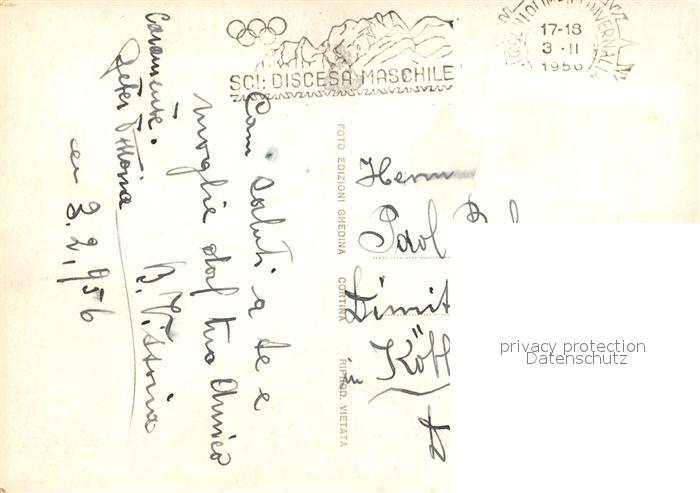 SCI: DISCESA MASCHILE
17-18
3-II
1956
Cari saluti a te e
moglie dal tuo Amico
B. Vittoria
Caramente.
Peter
3.2.956
FOTO EDIZIONI GHEDINA CORTINA RIPROD. VIETATA
Herrn
Paol
Dimit
in Köff
privacy protection
Datenschutz